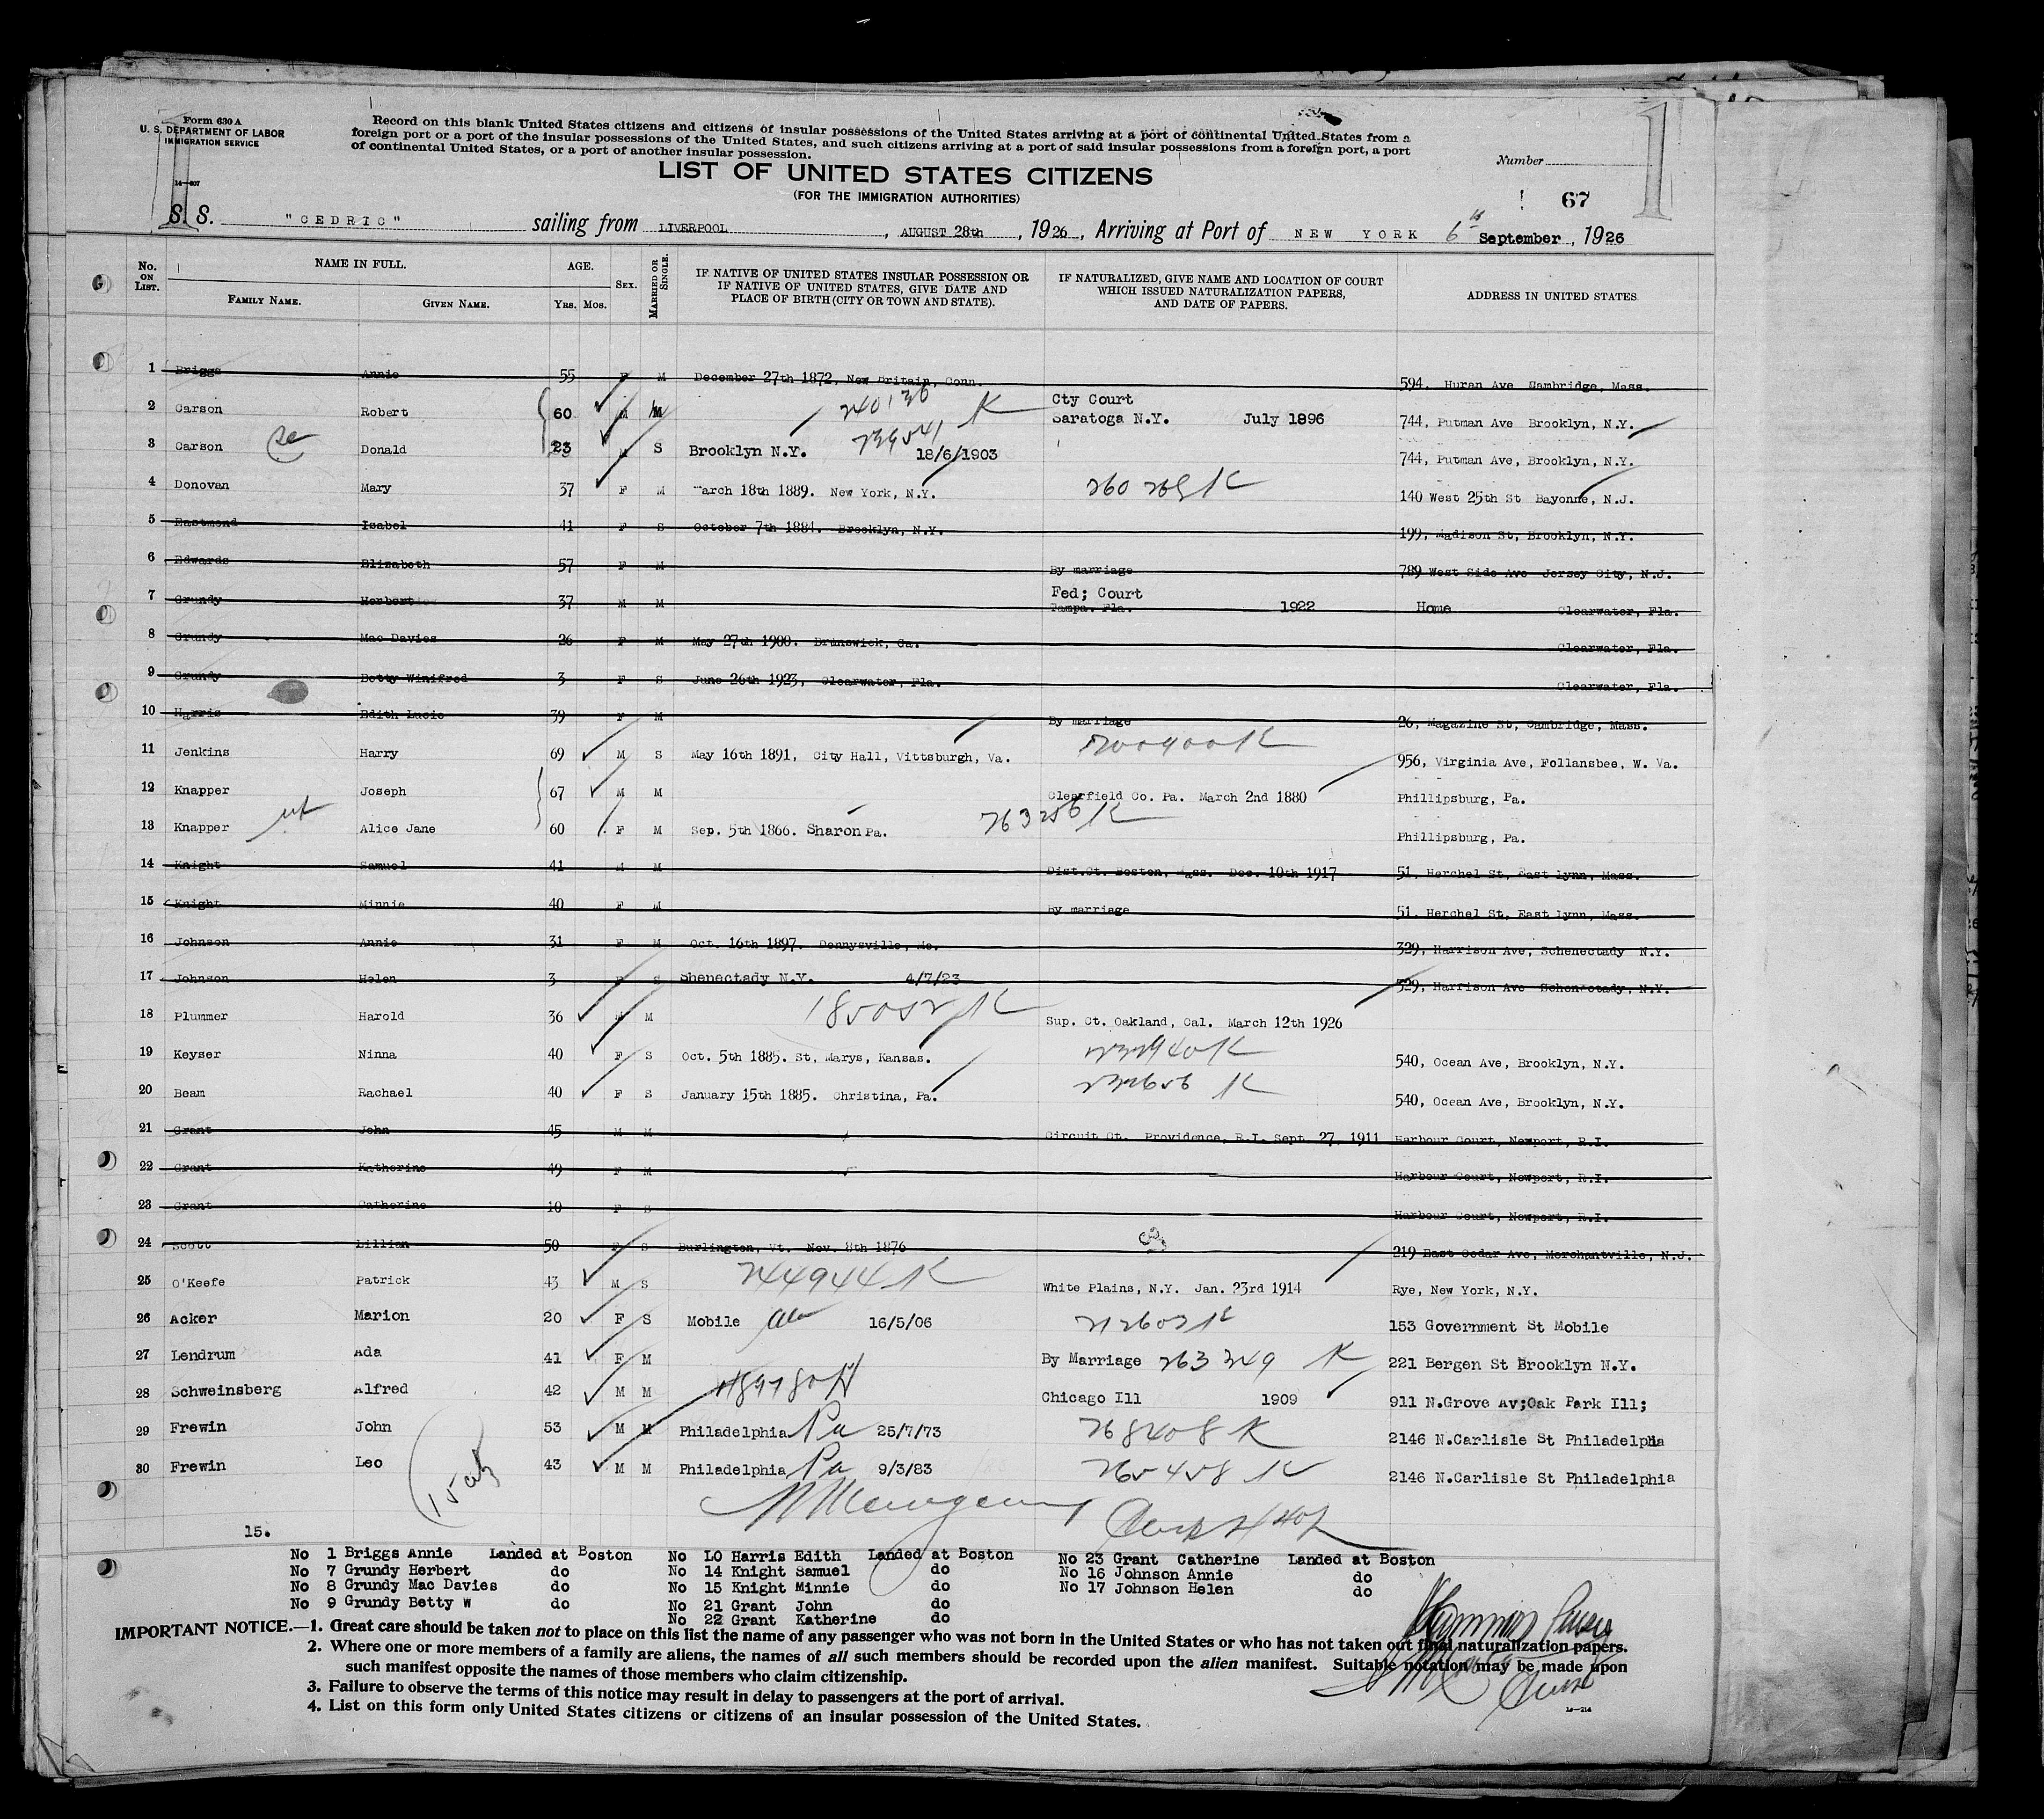 Form 630 A
U. S. DEPARTMENT OF LABOR
IMMIGRATION SERVICE
14—607
Record on this blank United States citizens and citizens of insular possessions of the United States arriving at a port of continental United States from a
foreign port or a port of the insular possessions of the United States, and such citizens arriving at a port of said insular possessions from a foreign port, a port
of continental United States, or a port of another insular possession.
LIST OF UNITED STATES CITIZENS
(FOR THE IMMIGRATION AUTHORITIES)
Number
1 67 1
S. S. "CEDRIC" sailing from LIVERPOOL, AUGUST 28th, 1926, Arriving at Port of NEW YORK 6th September, 1926
No. ON LIST. NAME IN FULL. FAMILY NAME. GIVEN NAME. AGE. YRS. MOS. SEX. MARRIED OR SINGLE. IF NATIVE OF UNITED STATES INSULAR POSSESSION OR IF NATIVE OF UNITED STATES, GIVE DATE AND PLACE OF BIRTH (CITY OR TOWN AND STATE). IF NATURALIZED, GIVE NAME AND LOCATION OF COURT WHICH ISSUED NATURALIZATION PAPERS, AND DATE OF PAPERS. ADDRESS IN UNITED STATES
1 Briggs Annie 55 F M December 27th 1872, New Britain, Conn. 594, Huran Ave Cambridge, Mass.
2 Carson Robert 60 M M 240136 K Cty Court Saratoga N.Y. July 1896 744, Putman Ave Brooklyn, N.Y.
3 Carson Donald 23 M S Brooklyn N.Y. 18/6/1903 744, Putman Ave, Brooklyn, N.Y.
4 Donovan Mary 37 F M March 18th 1889. New York, N.Y. K 140 West 25th St Bayonne, N.J.
5 Eastmond Isabel 41 F S October 7th 1884. Brooklyn, N.Y. 199, Madison St, Brooklyn, N.Y.
6 Edwards Elizabeth 57 F M By marriage 789 West Side Ave Jersey City, N.J.
7 Grundy Herbert 37 M M Fed; Court Tampa. Fla. 1922 Home Clearwater, Fla.
8 Grundy Mac Davies 26 F M May 27th 1900. Brunswick, Ga. Clearwater, Fla.
9 Grundy Betty Winifred 3 F S June 26th 1923, Clearwater, Fla. Clearwater, Fla.
10 Harris Edith Lucie 39 F M By marriage 26, Magazine St, Cambridge, Mass.
11 Jenkins Harry 69 M S May 16th 1891, City Hall, Vittsburgh, Va. K 956, Virginia Ave, Follansbee, W. Va.
12 Knapper Joseph 67 M M Clearfield Co. Pa. March 2nd 1880 Phillipsburg, Pa.
13 Knapper Alice Jane 60 F M Sep. 5th 1866. Sharon Pa. 263256 K Phillipsburg, Pa.
14 Knight Samuel 41 M M Dist.Ct. Boston, Mass. Dec. 10th 1917 51, Herchel St, East Lynn, Mass.
15 Knight Minnie 40 F M By marriage 51, Herchel St, East Lynn, Mass.
16 Johnson Annie 31 F M Oct. 16th 1897. Dennysville, Me. 329, Harrison Ave, Schenectady N.Y.
17 Johnson Helen 3 F S Shenectady N.Y. 4/7/23 329, Harrison Ave Schenectady, N.Y.
18 Plummer Harold 36 M M K Sup. Ct. Oakland, Cal. March 12th 1926
19 Keyser Ninna 40 F S Oct. 5th 1885. St, Marys, Kansas. K 540, Ocean Ave, Brooklyn, N.Y.
20 Beam Rachael 40 F S January 15th 1885. Christina, Pa. 232656 K 540, Ocean Ave, Brooklyn, N.Y.
21 Grant John 45 M M Circuit Ct. Providence, R.I. Sept. 27, 1911 Harbour Court, Newport, R.I.
22 Grant Katherine 49 F M Harbour Court, Newport, R.I.
23 Grant Catherine 10 F S Harbour Court, Newport, R.I.
24 Scott Lillian 50 F S Burlington, Vt. Nov. 8th 1876 219 East Cedar Ave, Merchantville, N.J.
25 O'Keefe Patrick 43 M S 244944 K White Plains, N.Y. Jan. 23rd 1914 Rye, New York, N.Y.
26 Acker Marion 20 F S Mobile Ala 16/5/06 212602 K 153 Government St Mobile
27 Lendrum Ada 41 F M By Marriage 263249 K 221 Bergen St Brooklyn N.Y.
28 Schweinsberg Alfred 42 M M Chicago Ill 1909 911 N.Grove Av;Oak Park Ill;
29 Frewin John 53 M M Philadelphia Pa 25/7/73 268408 K 2146 N.Carlisle St Philadelphia
30 Frewin Leo 43 M M Philadelphia Pa 9/3/83 265458 K 2146 N.Carlisle St Philadelphia
15.
No 1 Briggs Annie Landed at Boston No 10 Harris Edith Landed at Boston No 23 Grant Catherine Landed at Boston
No 7 Grundy Herbert do No 14 Knight Samuel do No 16 Johnson Annie do
No 8 Grundy Mac Davies do No 15 Knight Minnie do No 17 Johnson Helen do
No 9 Grundy Betty W do No 21 Grant John do
No 22 Grant Katherine do
IMPORTANT NOTICE.—1. Great care should be taken not to place on this list the name of any passenger who was not born in the United States or who has not taken out final naturalization papers.
2. Where one or more members of a family are aliens, the names of all such members should be recorded upon the alien manifest. Suitable notation may be made upon
such manifest opposite the names of those members who claim citizenship.
3. Failure to observe the terms of this notice may result in delay to passengers at the port of arrival.
4. List on this form only United States citizens or citizens of an insular possession of the United States.
14—214